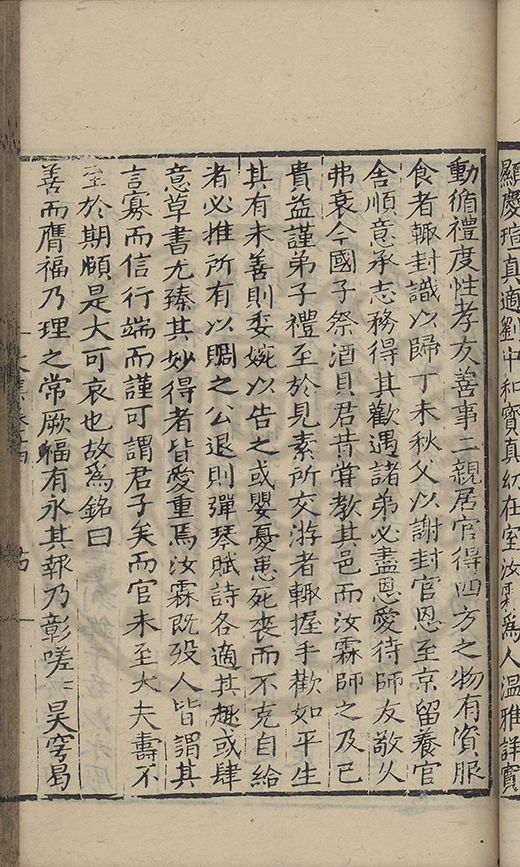 顯慶瑄真適劉中和賓真幼在室汝霖為人温雅詳實
動循禮度性孝友善事二親居官得四方之物有資服
食者輙封識以歸丁未秋父以謝封官恩至京留養官
舎順意承志務得其歡遇諸弟必盡恩愛待師友敬乆
弗衰今國子祭酒貝君昔甞教其邑而汝霖師之及已
貴益謹弟子禮至於見素所交游者輙握手歡如平生
其有未善則委婉以告之或嬰憂患死丧而不克自給
者必推所有以賙之公退則彈琴賦詩各適其趣或肆
意草書尤臻其妙得者皆愛重焉汝霖既殁人皆謂其
言寡而信行端而謹可謂君子矣而官未至大夫壽不
至於期頥是大可哀也故爲銘曰
善而膺福乃理之常厥福有永其報乃彰嗟〻昊穹曷